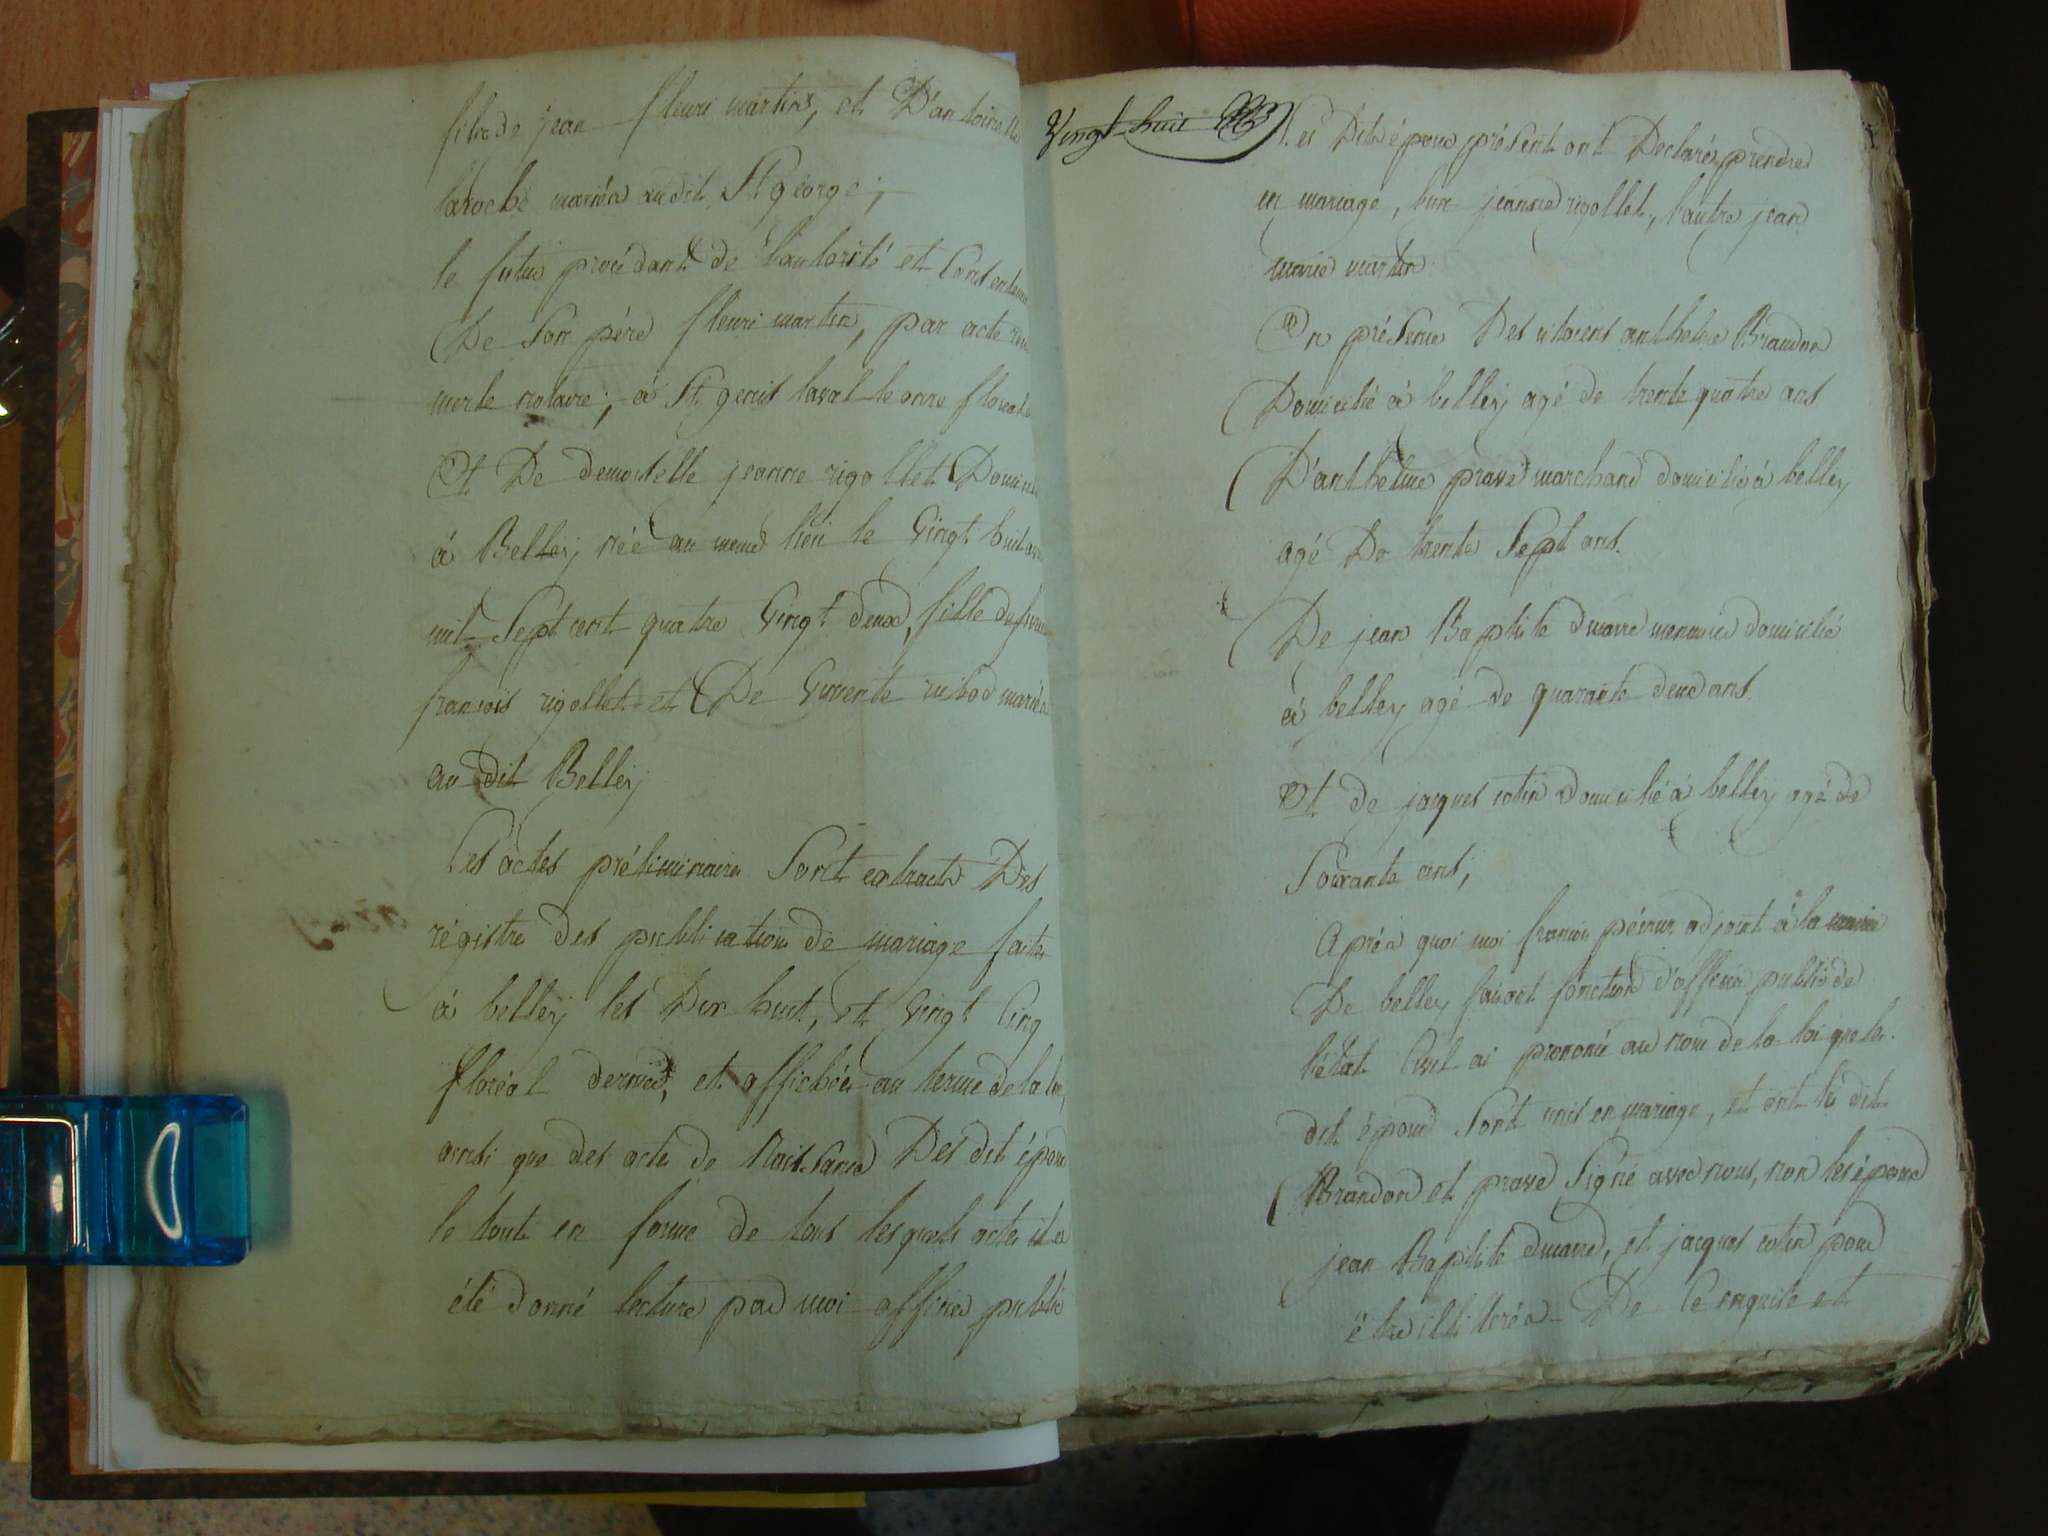 fils de jean fleuri martin, et D'antoinette
laroche mariés au dit St george;
le futur procédant de l'autorité et Consentem
De Son pére fleuri martin, par acte reçu
merle notaire; á St genis laval le onze floreal
Et De demoiselle jeanne rigollet Domicil
á Belley née au meme lieu le Vingt huit
mil Sept cent quatre Vingt deux, fille de
francois rigollet et De Vincente mariés
au dit Belley
Les actes préliminaires Sont extraits Des
régistre des publication de mariage faites
á belley les Dix huit, et Vingt Cinq
floréal dernier, et affichées au terme de la loi,
ainsi que des acte de Naissance Des dit époux
le tout en forme de tous lesquels actes il a
été donné lecture par moi officier public
Vingt huit
Les Dits époux présent ont Declarés prendre
en mariage, l'un jeanne rigollet, l'autre jean
marie martin
En présence Des citoiens anthelme Brandon
Domicilié á belley agé de trente quatre ans
D'anthelme prave marchand domicilié á belley
agé De trente Sept ans.
De jean Baptiste menuisier domicilié
á belley agé de quarante deux ans
Et de jacques cotin domicilié á belley agé de
Soixante ans;
Aprés quoi moi francois adjoint á la mairie
De belley faisant fonction d'officier public de
l'état Civil ai prononcé au nom de la loi que les
dit époux Sont unis en mariage, et ont les dit
Brandon et prave Signé avec nous, non les époux
jean Baptiste et jacques cotin pour
être illiterés De Ce enquis et